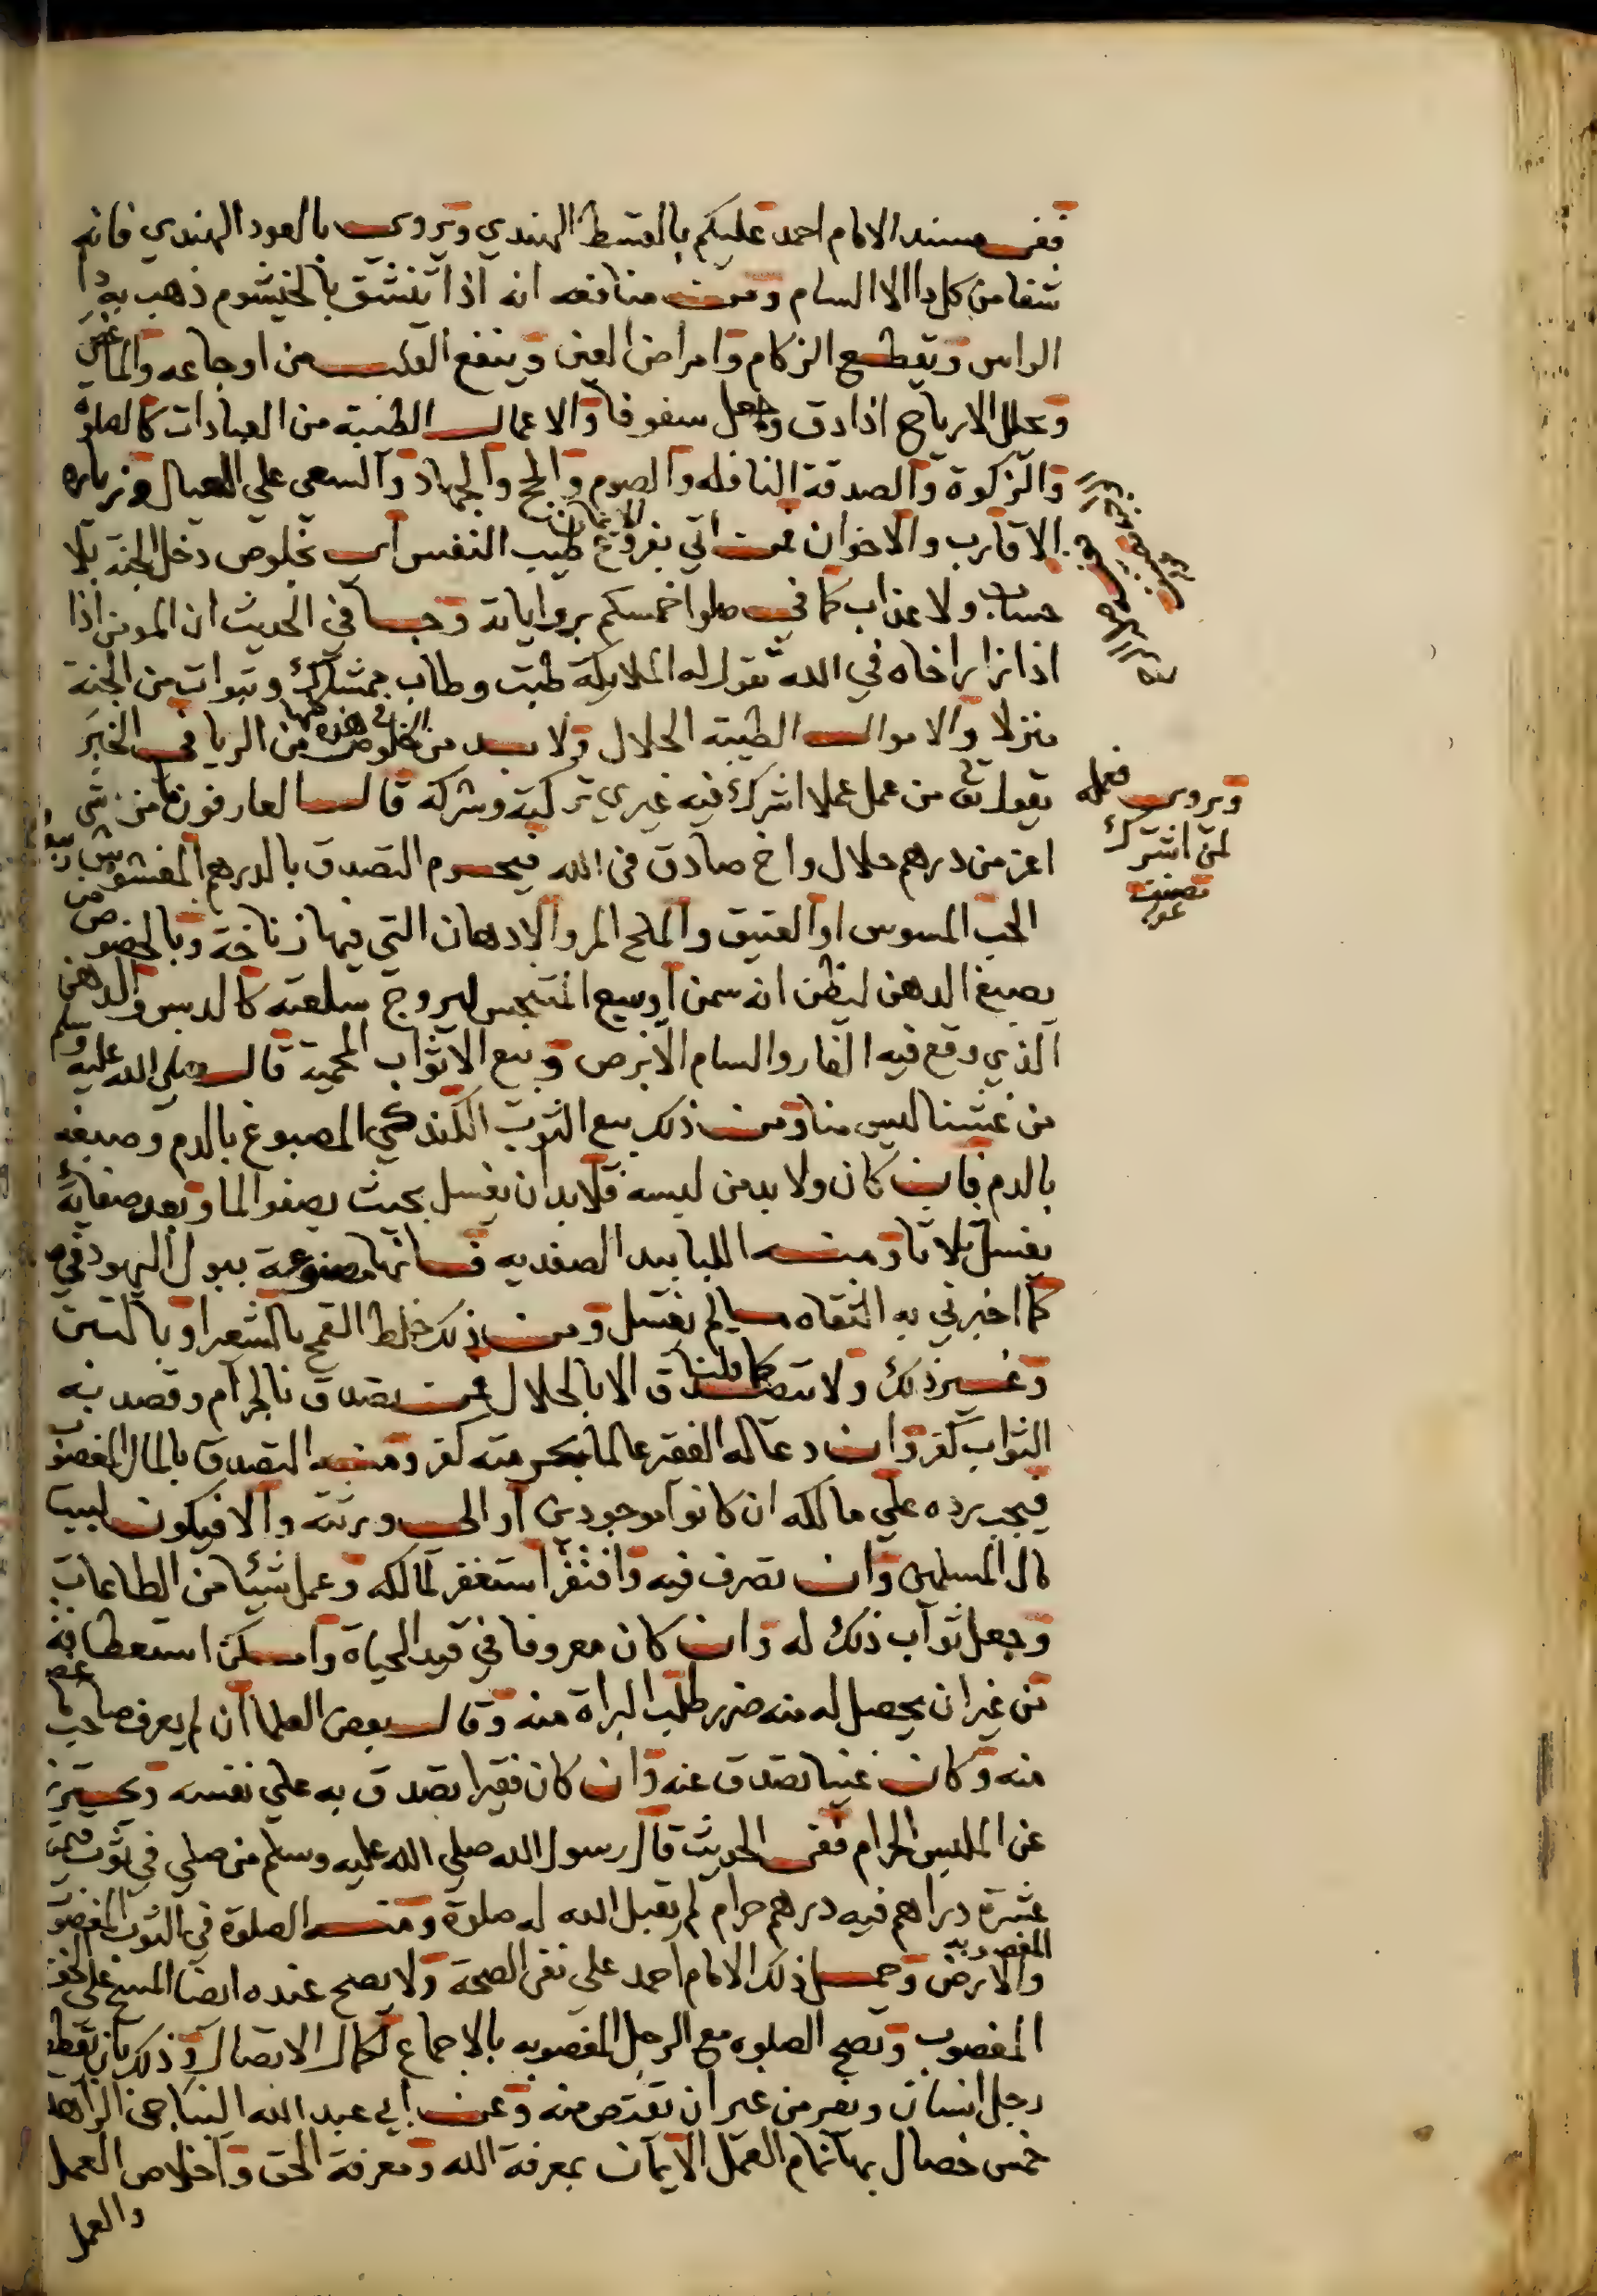 ففى مسند الامام احمد عليكم بالقسط الهندي ويروى بالعود الهندي فانه
شفا من كل دا الا السام ومن منافعه انه اذا تنشق بالخيشوم ذهب به دا
الراس ويقطع الزكام وامراض العين وينفع القلب من اوجاعه والماغص
ويحلل الارياح اذا دق وجعل سفوفا والاعمال الطيبة من العبادات كالصلوة
والزكوة والصدقة النافله والصوم والحج والجهاد والسعى علي العيال وزياره
الاقارب والاخوان فمن اتي بفروع الايمان طيب النفس اى بخلوص دخل الجنة بلا
حساب ولا عذاب كما في صلوا خمسكم برواياته وجا في الحديث ان المومن اذا
اذا زار اخاه في الله تقول له الملايكة طبت وطاب ممشاك وتبوات من الجنة
منزلا والاموال الطيبة الحلال ولا بد من الخلوص في هذه كلها من الريا فى الخبر
يقول تعالى من عمل عملا اشرك فيه غيري تركته وشركه قال العارفون ما من شى
ويروى فعمله
لمن اشرك
اعز من درهم حلال واخ صادق فى الله فيحرم التصدق بالدرهم المغشوش وبيع
الحب المسوس او العتيق والملح المر والادهان التي فيها زناخة وبالخصوص من
يصبغ الدهن ليظن انه سمن او يبيع المتنجس ليروج سلعته كالدبس والدهن
الذي وقع فيه الفار والسام الابرص وبيع الاثواب المحمية قال صلى الله عليه وسلم
من غشنا ليس منا ومن ذلك بيع الثوب الكندكي المصبوغ بالدم وصبغه
بالدم فان كان ولا بد من لبسه فلا بد ان يغسل بحيث يصفو الما وبعد صفايه
يغسل ثلاثا ومنه اللبابيد الصفديه فانها مصنوعة ببول اليهود فى صفد
كما اخبرني به الثقاه ما لم يغسل ومن ذلك خلط القمح بالشعير او بالتبن
وغير ذلك ولا يتصدق كما قلنا الا بالحلال فمن تصدق بالحرام وقصد به
الثواب كفر وان دعا له الفقير عالما بحرمته كفر ومنه التصدق بالمال المغصوب
فيجب رده علي مالكه ان كانوا موجودين او الى ورثته والا فيكون لبيت
مال المسلمين وان تصرف فيه وافتقر استغفر لمالكه وعمل شيئا من الطاعات
وجعل ثواب ذلك له وان كان معروفا في قيد الحياة وامكن استعطافه
من غير ان يحصل له منه ضرر طلب البراة منه وقال بعض العلما ان لم يعرف صاحب ما غصب
منه وكان غنيا تصدق عنه وان كان فقيرا تصدق به علي نفسه ويحترز
عن الملبس الحرام ففى الحديث قال رسول الله صلي الله عليه وسلم من صلي في ثوب قيمته
عشرة دراهم فيه درهم حرام لم يقبل الله له صلوة ومنه الصلوة في الثوب المغصوب
والارض المغصوبه وحمل ذلك الامام احمد علي نفى الصحة ولا يصح عنده ايضا المسح على الخف
المغصوب وتصح الصلوه مع الرجل المغصوبه بالاجماع لكمال الاتصال وذلك بان يقطع
رجل انسان ويفر من غير ان يقتص منه وعن ابي عبد الله النباجى الزاهد
خمس خصال بها تمام العمل الايمان بمعرفة الله ومعرفة الحق واخلاص العمل
والعمل